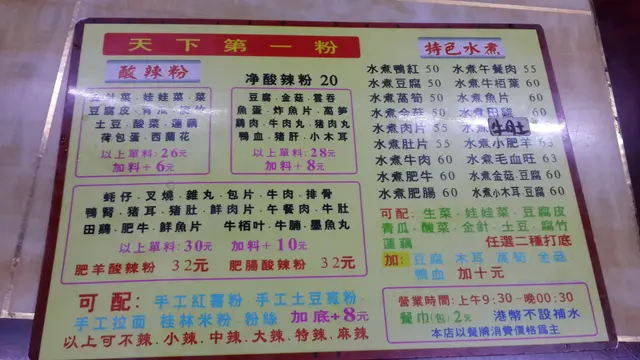 天下第一粉
酸辣粉
净酸辣粉 20
金針菜．娃娃菜．菜
豆腐皮．青瓜．皮旦
土豆．酸菜．蓮藕
荷包蛋．西蘭花
以上單料：26元
加料＋6元
豆腐．金菇．雲吞
魚蛋．炸魚片．萵笋
鷄肉．牛肉丸．豬肉丸
鴨血．豬肝．小木耳
以上單料：28元
加料＋8元
蚝仔．叉燒．雜丸．包片．牛肉．排骨
鴨腎．豬耳．豬肚．鮮肉片．午餐肉．牛肚
田鷄．肥牛．鮮魚片．牛栢叶．牛腩．墨魚丸
以上單料：30元 加料＋10元
肥羊酸辣粉 32元 肥腸酸辣粉 32元
可配：手工紅薯粉 手工土豆寬粉
手工拉面 桂林米粉 粉絲 加底＋8元
以上可不辣、小辣、中辣、大辣、特辣、麻辣
特色水煮
水煮鴨紅 50
水煮豆腐 50
水煮萵筍 50
水煮金菇 50
水煮肉片 55
水煮肚片 55
水煮牛肉 60
水煮肥牛 60
水煮肥腸 60
水煮午餐肉 55
水煮牛栢葉 60
水煮魚片 60
水煮田鷄 60
水煮
水煮小肥羊 63
水煮毛血旺 63
水煮金菇．豆腐 60
水煮小木耳．豆腐 60
可配：生菜．娃娃菜．豆腐皮
青瓜．酸菜．金針．土豆．腐竹
蓮藕 任選二種打底
加：豆腐 木耳 萵筍 金菇
鴨血 加十元
營業時間：上午9:30－晚00:30
餐巾（包）2元 港幣不設補水
本店以餐牌消費價格爲主